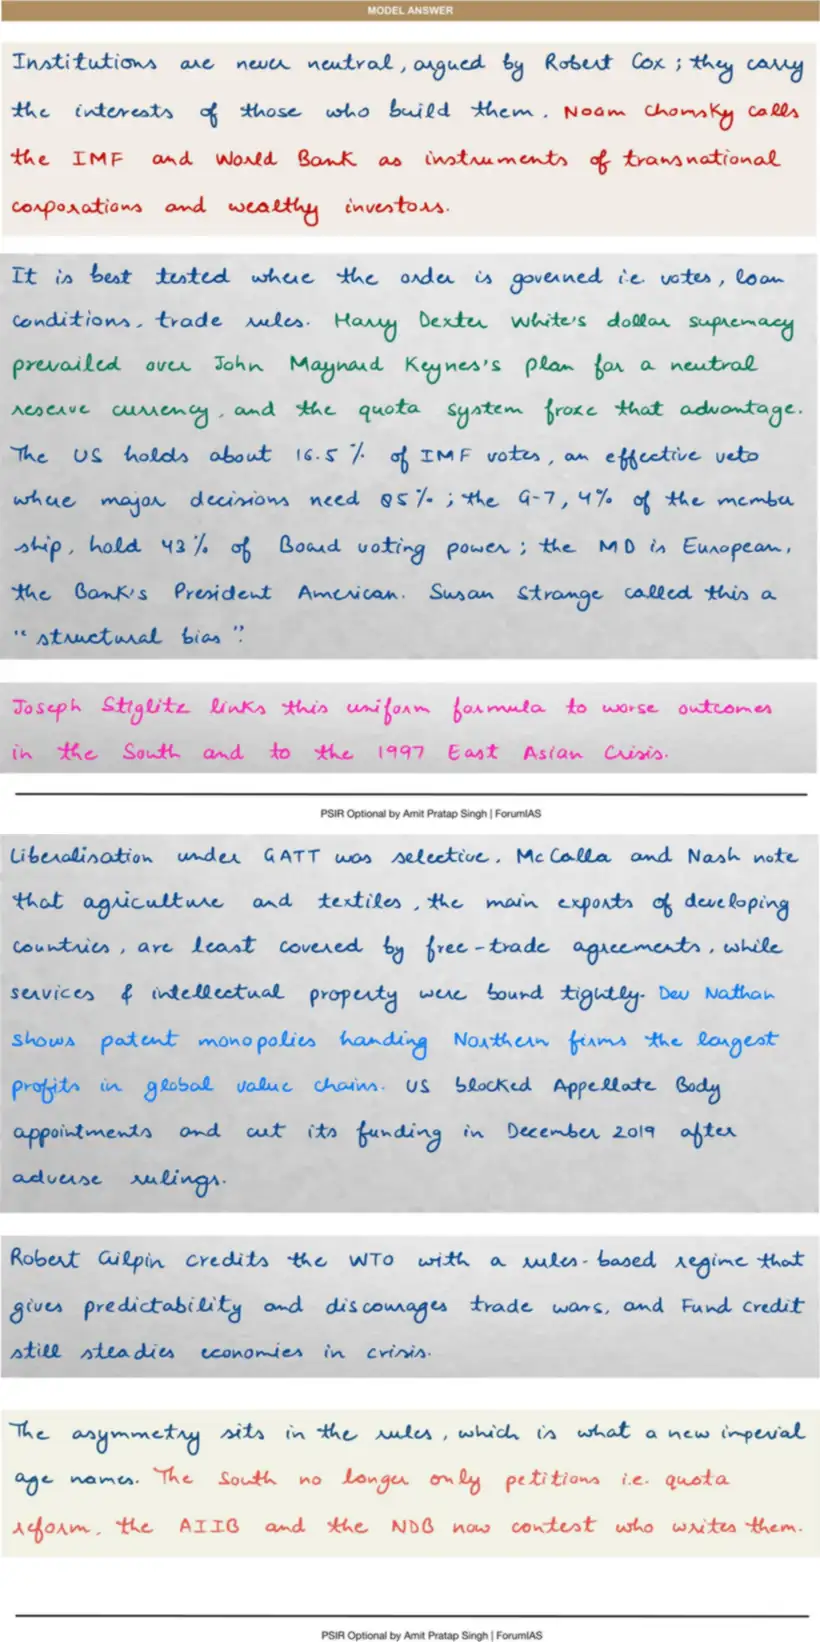 MODEL ANSWER
Institutions are never neutral, argued by Robert Cox; they carry
the interests of those who build them. Noam Chomsky calls
the IMF and World Bank as instruments of transnational
corporations and wealthy investors.
It is best tested where the order is governed i.e. votes, loan
conditions, trade rules. Harry Dexter White's dollar supremacy
prevailed over John Maynard Keynes's plan for a neutral
reserve currency, and the quota system froze that advantage.
The US holds about 16.5% of IMF votes, an effective veto
where major decisions need 85%; the G-7, 4% of the member
ship, hold 43% of Board voting power; the MD is European,
the Bank's President American. Susan Strange called this a
"structural bias".
Joseph Stiglitz links this uniform formula to worse outcomes
in the South and to the 1997 East Asian Crisis.
PSIR Optional by Amit Pratap Singh | ForumIAS
Liberalisation under GATT was selective. McCalla and Nash note
that agriculture and textiles, the main exports of developing
countries, are least covered by free-trade agreements, while
services & intellectual property were bound tightly. Dev Nathan
shows patent monopolies handing Northern firms the largest
profits in global value chains. US blocked Appellate Body
appointments and cut its funding in December 2019 after
adverse rulings.
Robert Gilpin credits the WTO with a rules-based regime that
gives predictability and discourages trade wars, and Fund credit
still steadies economies in crisis.
The asymmetry sits in the rules, which is what a new imperial
age names. The South no longer only petitions i.e. quota
reform, the AIIB and the NDB now contest who writes them.
PSIR Optional by Amit Pratap Singh | ForumIAS